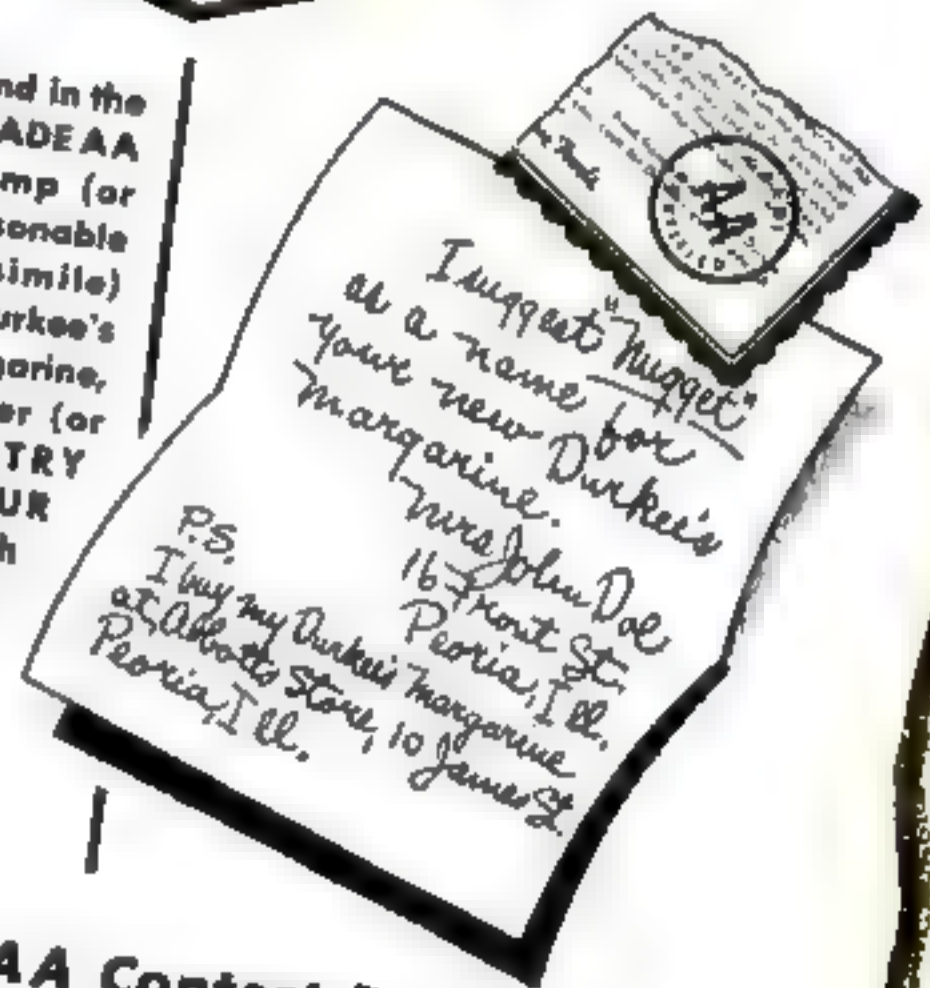 nd in the
ADE AA
mp (or
sonable
simile)
urkee's
garine,
er (or
TRY
UR
h
AA
I suggest "Nugget"
as a name for
your new Durkee's
margarine.
Mrs John Doe
16 Front St.
Peoria, Ill.
P.S.
I buy my Durkee's Margarine
at Abbotts Store, 10 James St.
Peoria, Ill.
AA Contest